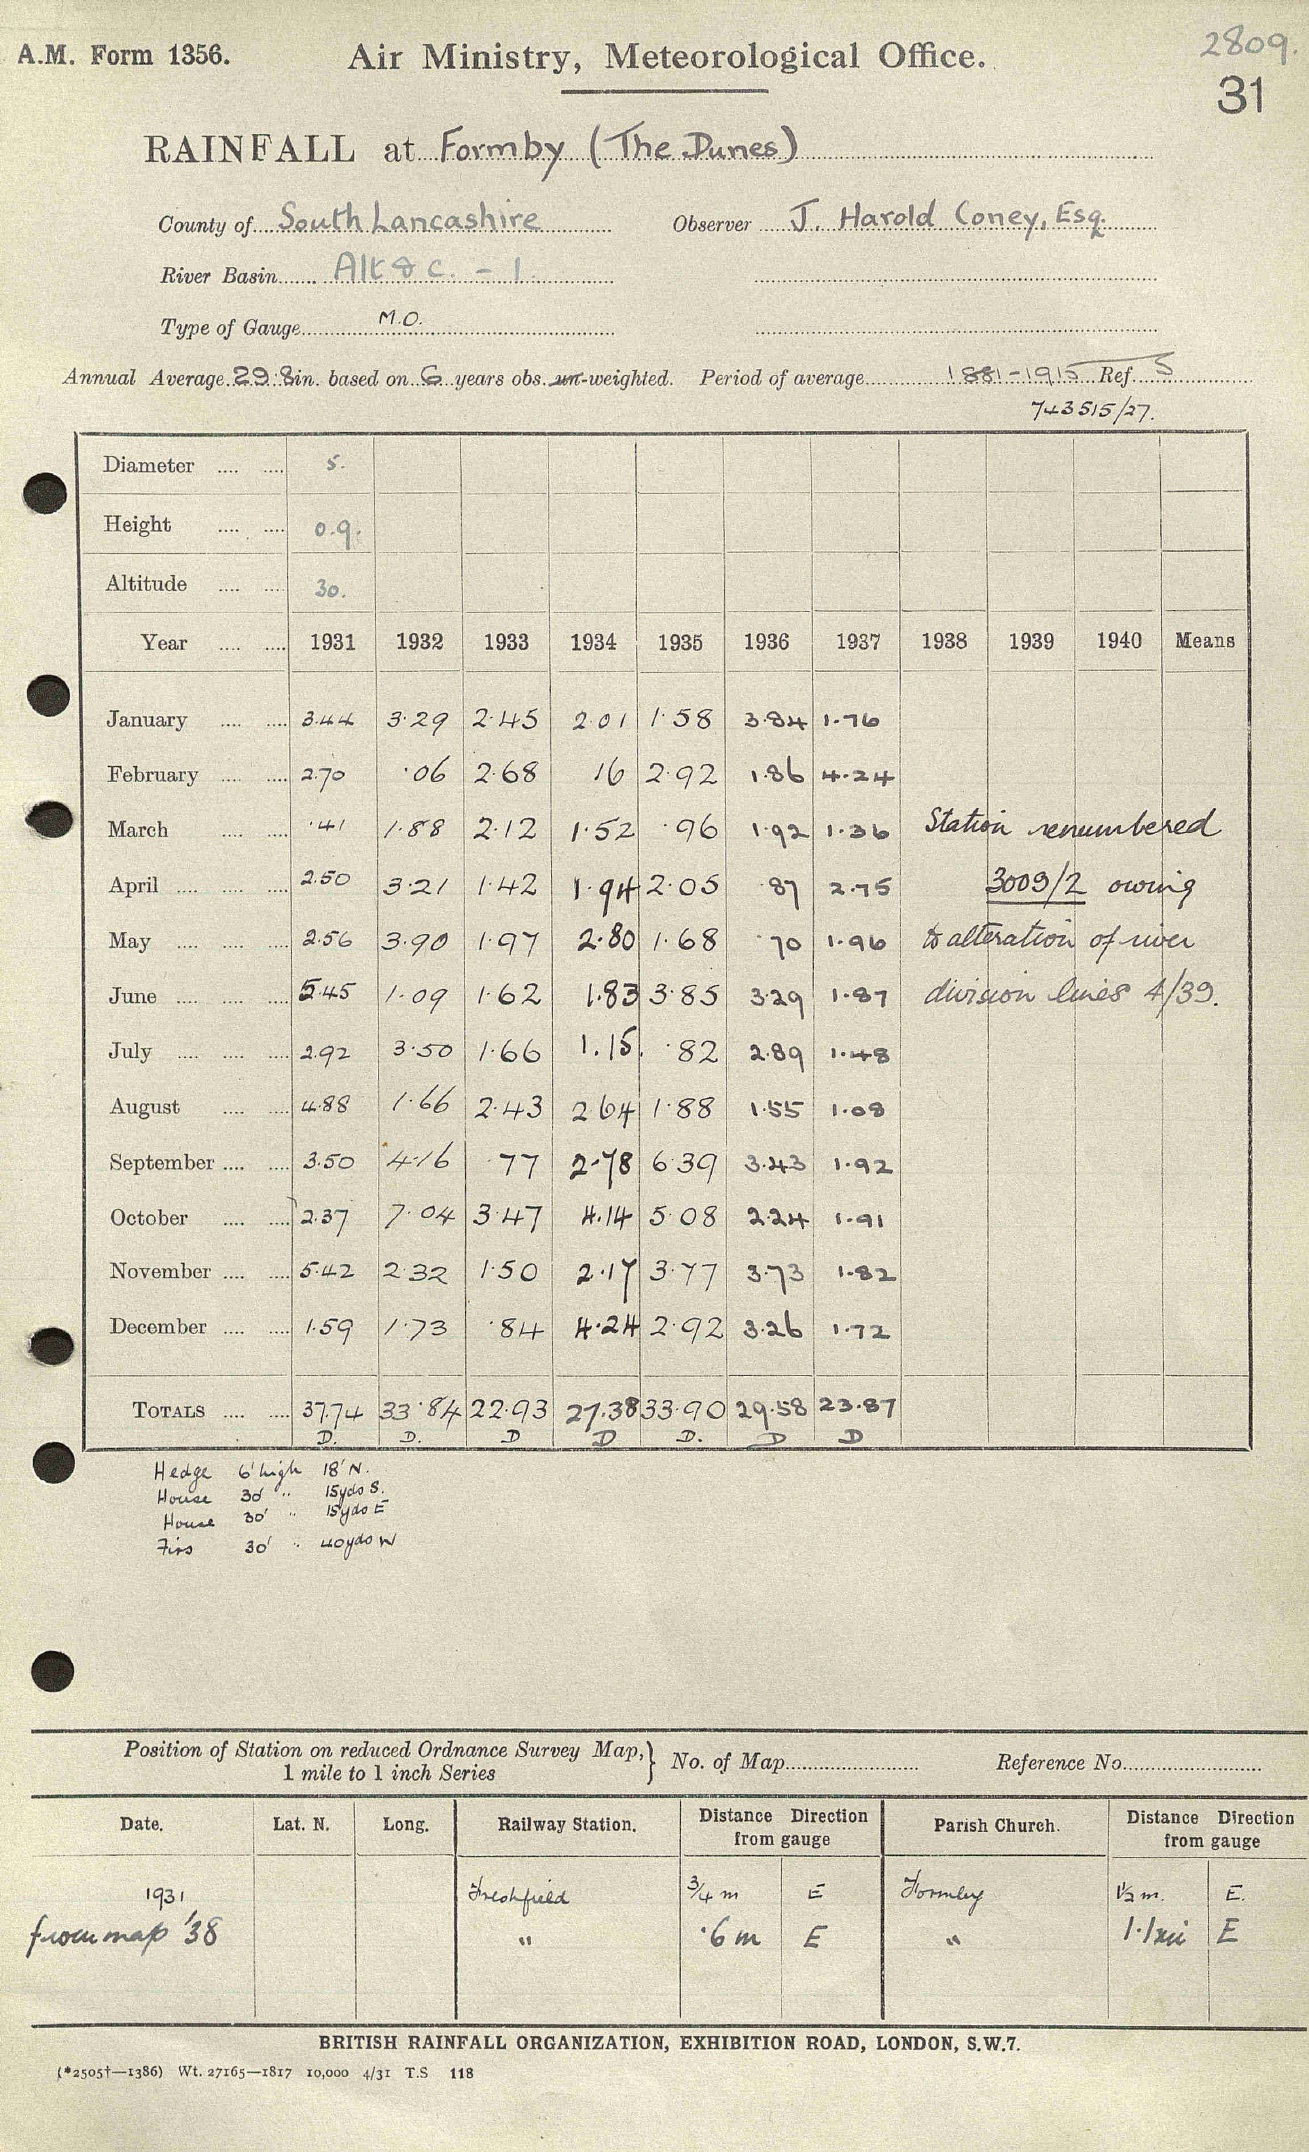 2809.
A.M. Form 1356. Air Ministry, Meteorological Office.
31
RAINFALL at Formby (The Dunes)
County of South Lancashire Observer J. Harold Coney, Esq.
River Basin Alt & c. - 1.
Type of Gauge M.O.
Annual Average 29.8 in. based on 6 years obs. un-weighted. Period of average 1881-1915 Ref. S
743515/27.
Diameter .... .... 5.
Height .... .... 0.9.
Altitude .... .... 30.
Year .... .... 1931 1932 1933 1934 1935 1936 1937 1938 1939 1940 Means
January .... .... 3.44 3.29 2.45 2.01 1.58 3.84 1.76
February .... .... 2.70 .06 2.68 16 2.92 1.86 4.24
March .... .... .41 1.88 2.12 1.52 .96 1.92 1.36 Station renumbered
April .... .... .... 2.50 3.21 1.42 1.94 2.05 .87 2.75 3009/2 owing
May .... .... .... 2.56 3.90 1.97 2.80 1.68 .70 1.96 to alteration of river
June .... .... .... 5.45 1.09 1.62 1.83 3.85 3.29 1.87 division lines 4/39.
July .... .... .... 2.92 3.50 1.66 1.15. .82 2.89 1.48
August .... .... 4.88 1.66 2.43 2 64 1.88 1.55 1.08
September .... .... 3.50 4.16 .77 2.78 6.39 3.43 1.92
October .... .... 2.37 7.04 3.47 4.14 5.08 2.24 1.91
November .... .... 5.42 2.32 1.50 2.17 3.77 3.73 1.82
December .... .... 1.59 1.73 .84 4.24 2.92 3.26 1.72
TOTALS .... .... 37.74 33.84 22.93 27.38 33.90 29.58 23.87
D. D. D D D. D D
Hedge 6' high 18' N.
House 30' " 15yds S.
House 30' " 15yds E
Firs 30' " 40yds W
Position of Station on reduced Ordnance Survey Map, } No. of Map Reference No.
1 mile to 1 inch Series
Date. Lat. N. Long. Railway Station. Distance Direction Parish Church. Distance Direction
from gauge from gauge
1931 Freshfield 3/4 m E Formby 1½ m. E.
from map '38 " .6 m E " 1.1 mi E
BRITISH RAINFALL ORGANIZATION, EXHIBITION ROAD, LONDON, S.W.7.
(*2505†—1386) Wt. 27165—1817 10,000 4/31 T.S 118